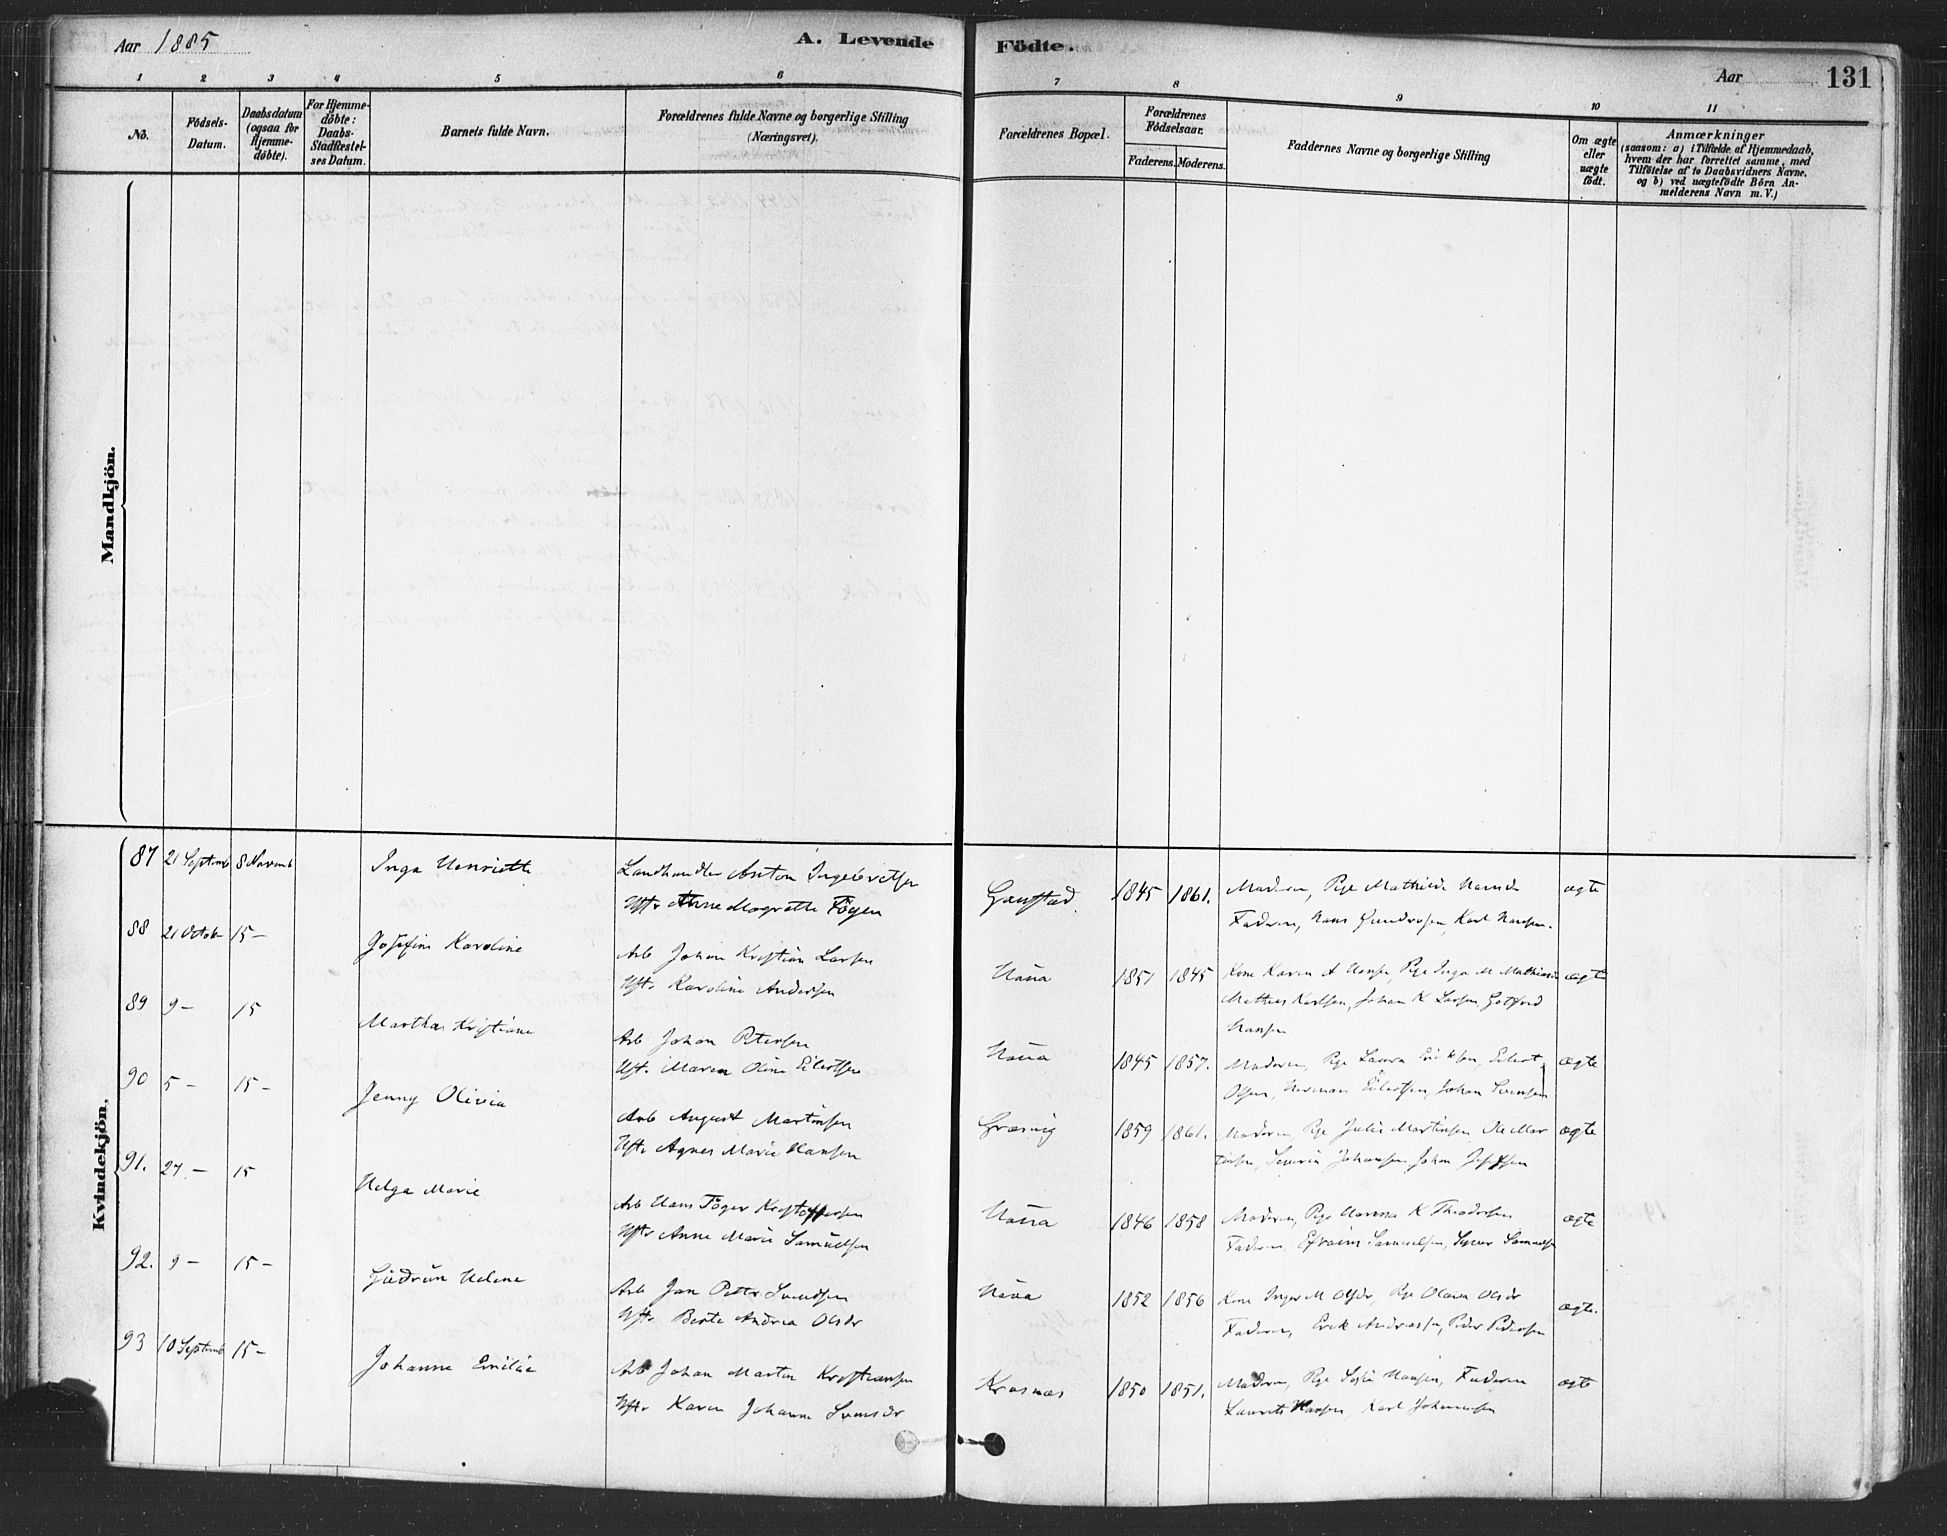 Aar 1885
A. Levende Födte.
Aar
131
1 2 3 4 5 6 7 8 9 10 11
No.
Födsels-Datum.
Daabsdatum (ogsaa for Hjemme-döbte).
For Hjemme-döbte: Daabs-Stadfæstel-ses Datum.
Barnets fulde Navn.
Forældrenes fulde Navne og borgerlige Stilling (Næringsvei).
Forældrenes Bopæl.
Forældrenes Födselsaar.
Faderens. Moderens.
Faddernes Navne og borgerlige Stilling
Om ægte eller uægte födt.
Anmærkninger
(saasom: a) i Tilfælde af Hjemmedaab,
hvem der har forrettet samme, med
Tilföielse af to Daabsvidners Navne,
og b) ved uægtefödte Börn An-
melderens Navn m. V.)
Mandkjön.
Kvindekjön.
87 21 Septemb 8 Novemb Inga Henriette Landhandler Anton Ingebretsen
Hst. Anne Magrethe Töger
1845 1861. Moderen, Pge Mathilde
Faderen, Hans Gundersen, Karl Hansen.
ægte
88 21 Octobr 15- Josefine Karoline Arb Johan Kristian Larsen
Hst. Karoline Andersen
1851 1845 Kone Karen A Hansen, Pge Inga M
Mathias Karlsen, Johan K Larsen,
Hansen
ægte
89 9- 15 Martha Kristiane Arb Johan Petersen
Hst. Maren Oline Eilertsen
1845 1857. Moderen, Pge Laura Eriksen, Eilert
Olsen, Herman Eilertsen, Johan Svensen
ægte
90 5- 15- Jenny Olivia Arb August Martinsen
Hst. Agnes Marie Hansen
1859 1861. Moderen, Pge Julie Martinsen, Ole Mar
tinsen, Severin Johansen, Johan
ægte
91. 27- 15 Helga Marie Arb Hans Töger Kristoffersen
Hst. Anne Marie Samuelsen
1846 1858 Moderen, Pge K Theodorsen
Faderen, Efraim Samuelsen, Samuelsen
ægte
92. 9- 15- Gudrun Helene Arb Jan Petter Svendsen
Hst. Berte Andrea Olsdr
1852 1856 Kone Inger M Olsdr, Pge Olava Olsdr
Faderen, Erik Andreassen, Peder Pedersen
ægte.
93 10 Septemb 15- Johanne Emilie Arb Johan Martin Kristiansen
Hst. Karen Johanne
Krosnæs 1850 1851. Moderen, Pge Hansen, Faderen
Laurits Hansen, Karl Johannesen
ægte